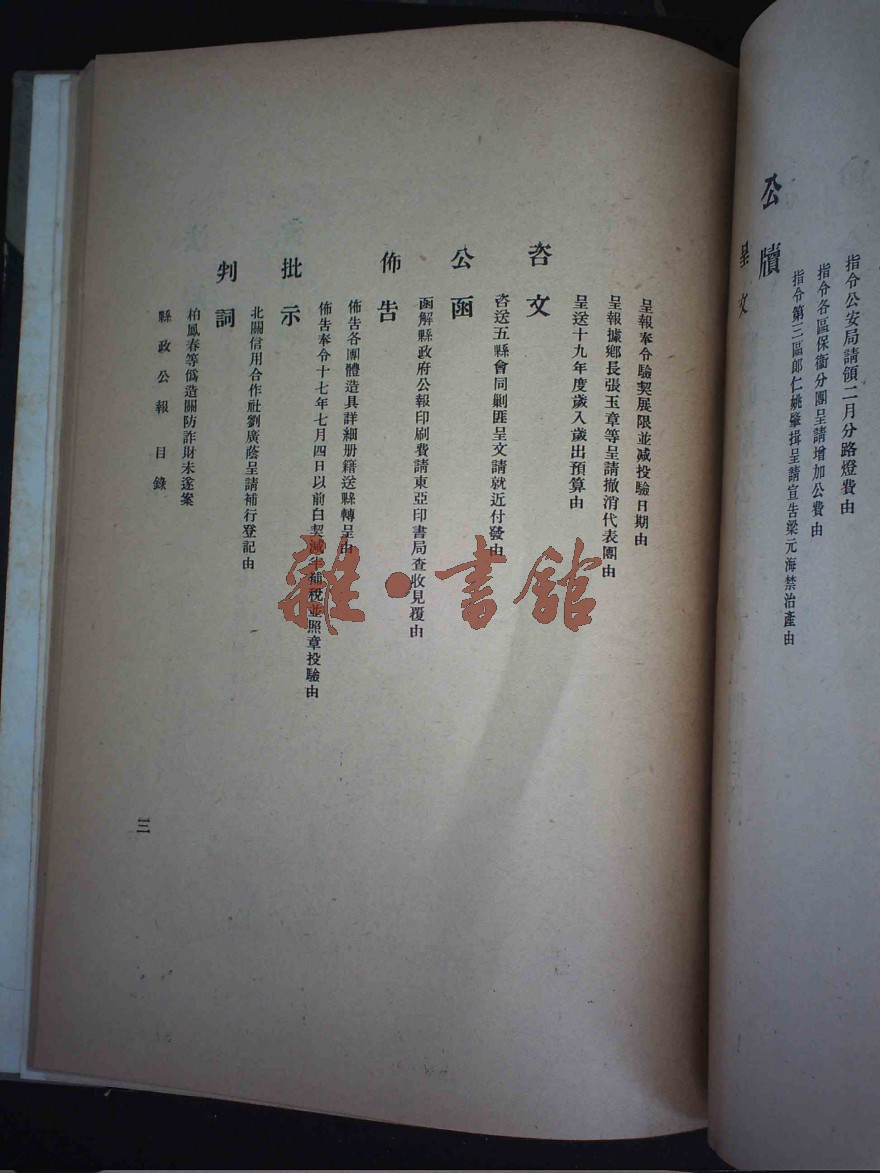 指令公安局請領二月分路燈費由
指令各區保衛分團呈請增加公費由
指令第三區郎仁姚肇揖呈請宣告梁元海禁治產由
公牘
呈文
呈報奉令驗契展限並減投驗日期由
呈報據鄉長張玉章等呈請撤消代表團由
呈送十九年度歲入歲出預算由
咨文
咨送五縣會同剿匪呈文請就近付發由
公函
函解縣政府公報印刷費請東亞印書局查收見覆由
佈告
佈告各團體造具詳細册籍送縣轉呈由
佈告奉令十七年七月四日以前白契減半補稅並照章投驗由
批示
北關信用合作社劉廣蔭呈請補行登記由
判詞
柏鳳春等僞造關防詐財未遂案
縣政公報 目錄
三
雜·書館